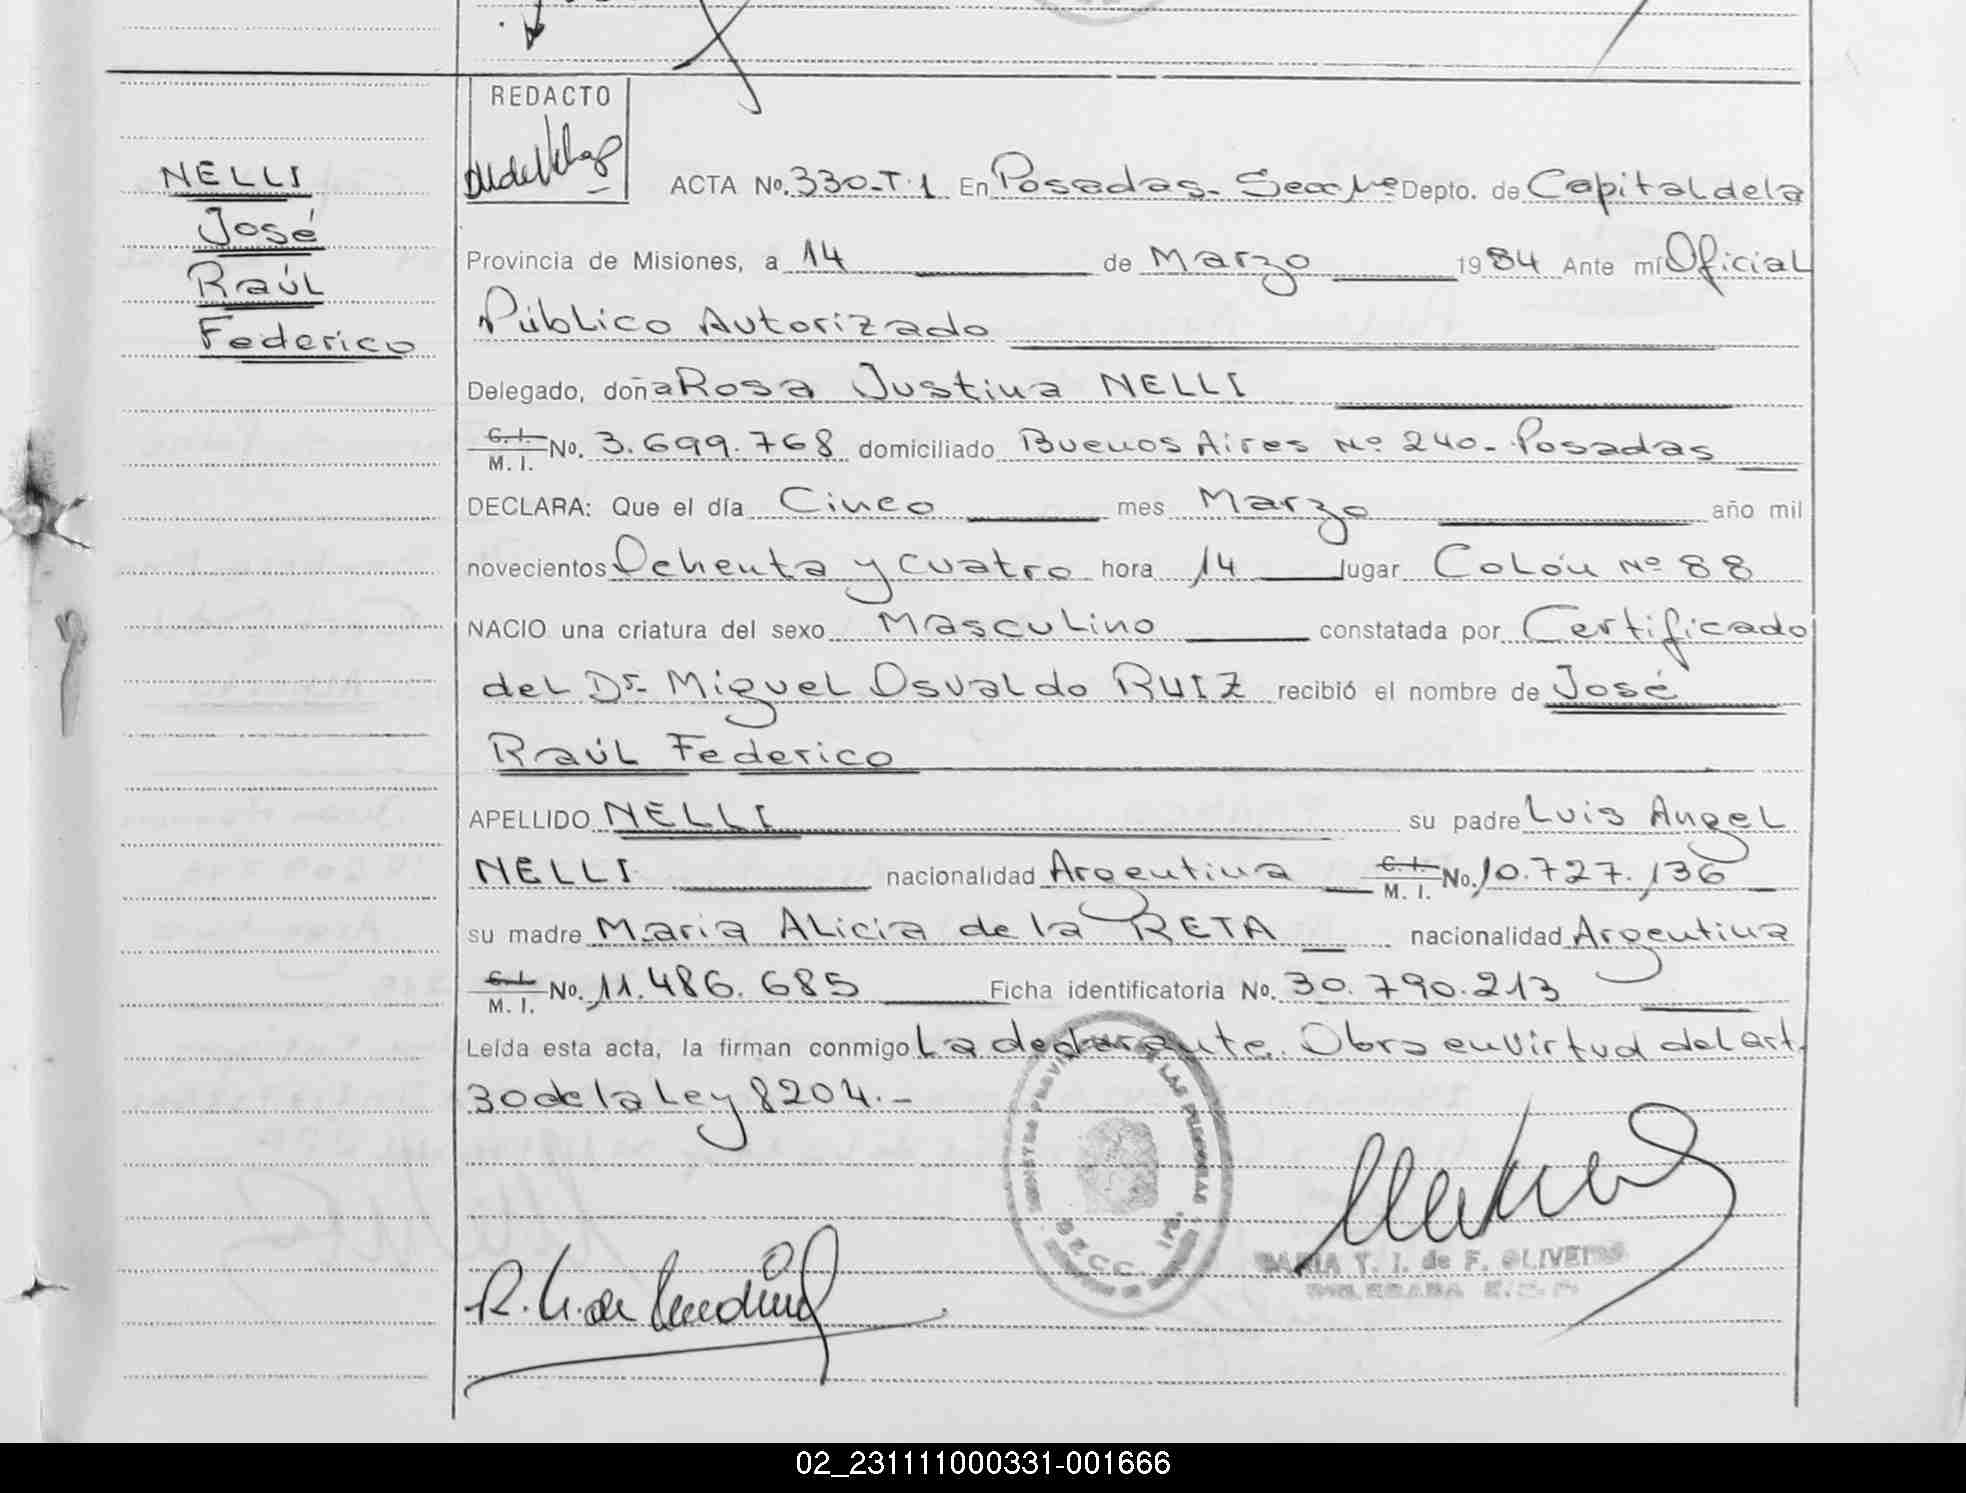 REDACTO
NELLI
José
Raúl
Federico
ACTA No. 330-T.1 En Posadas- Depto. de Capital de la
Provincia de Misiones, a 14 de Marzo 1984 Ante mí Oficial
Público Autorizado
Delegado, doña Rosa Justina NELLI
C. I. M. I. No. 3.699.768 domiciliado Buenos Aires Nº 240- Posadas
DECLARA: Que el día Cinco mes Marzo año mil
novecientos Ochenta y cuatro hora 14 lugar Colón Nº 88
NACIO una criatura del sexo Masculino constatada por Certificado
del Dr. Miguel Osvaldo RUIZ recibió el nombre de José
Raúl Federico
APELLIDO NELLI su padre Luis Angel
NELLI nacionalidad Argentina C. I. M. I. No. 10.727.136
su madre Maria Alicia de la RETA nacionalidad Argentina
C. I. M. I. No. 11.486.685 Ficha identificatoria No. 30.790.213
Leída esta acta, la firman conmigo La declarante. Obro en virtud del art.
30 de la Ley 8204.-
MARIA T. I. de F. OLIVEIRA
02_231111000331-001666